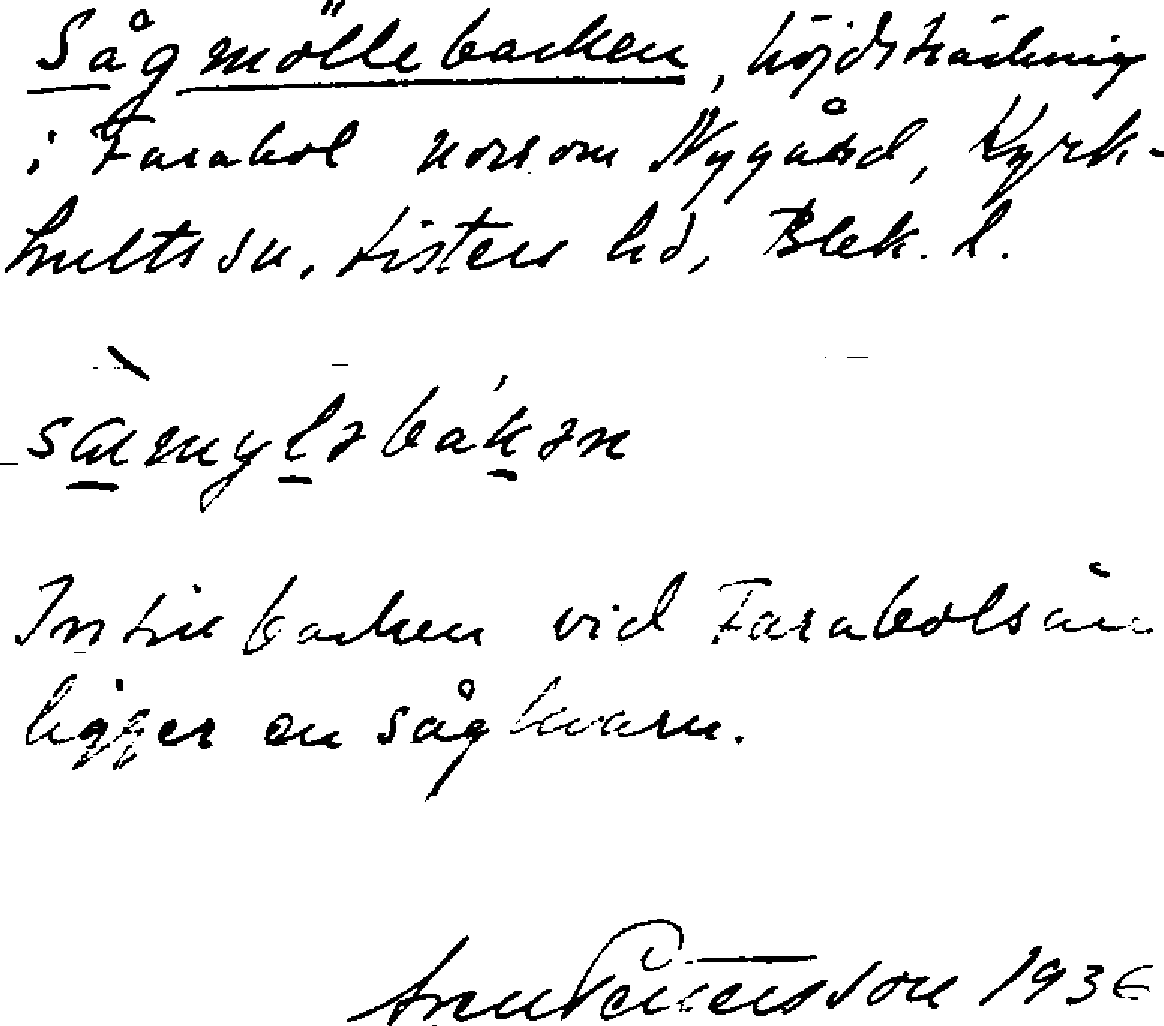 Sågmöllebacken, höjdsträckning
i Farabol norr om Nygård, Kyrk-
hults sn, Listers hd, Blek. l.
saumyləbakən
Intill backen vid Farabolsån
ligger en sågkvarn.
Pettersson 1936